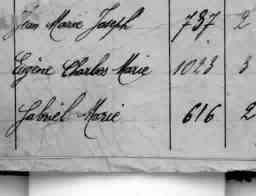 Jean Marie Joseph 737 2
Eugène Charles Marie 1023 3
Gabriel Marie 616 2